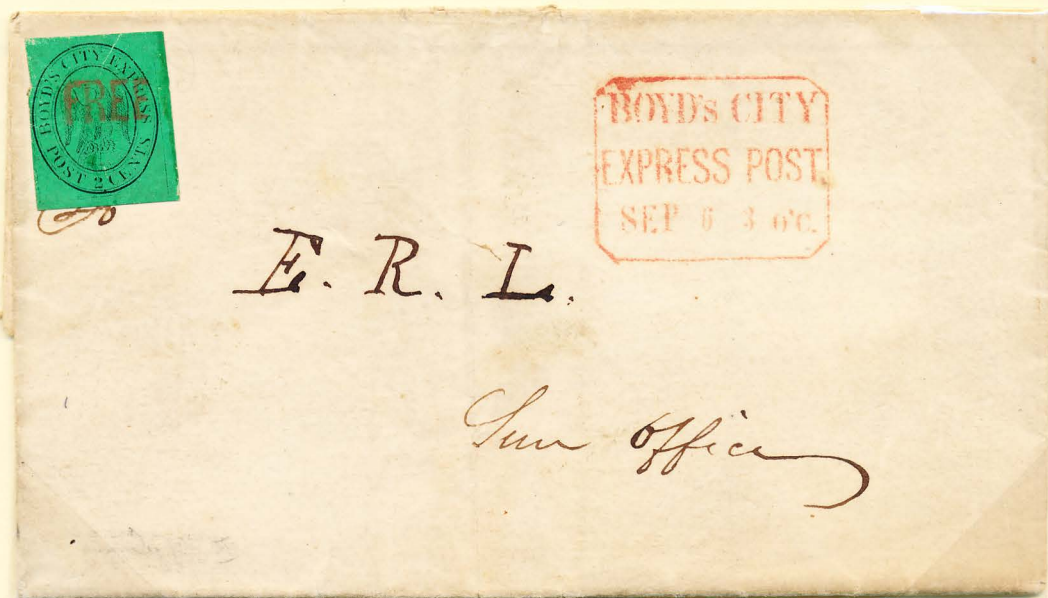 BOYD'S CITY EXPRESS
POST 2 CENTS
FREE
BOYD's CITY
EXPRESS POST.
SEP 6 3 o'c.
To
E. R. L.
Sun Office